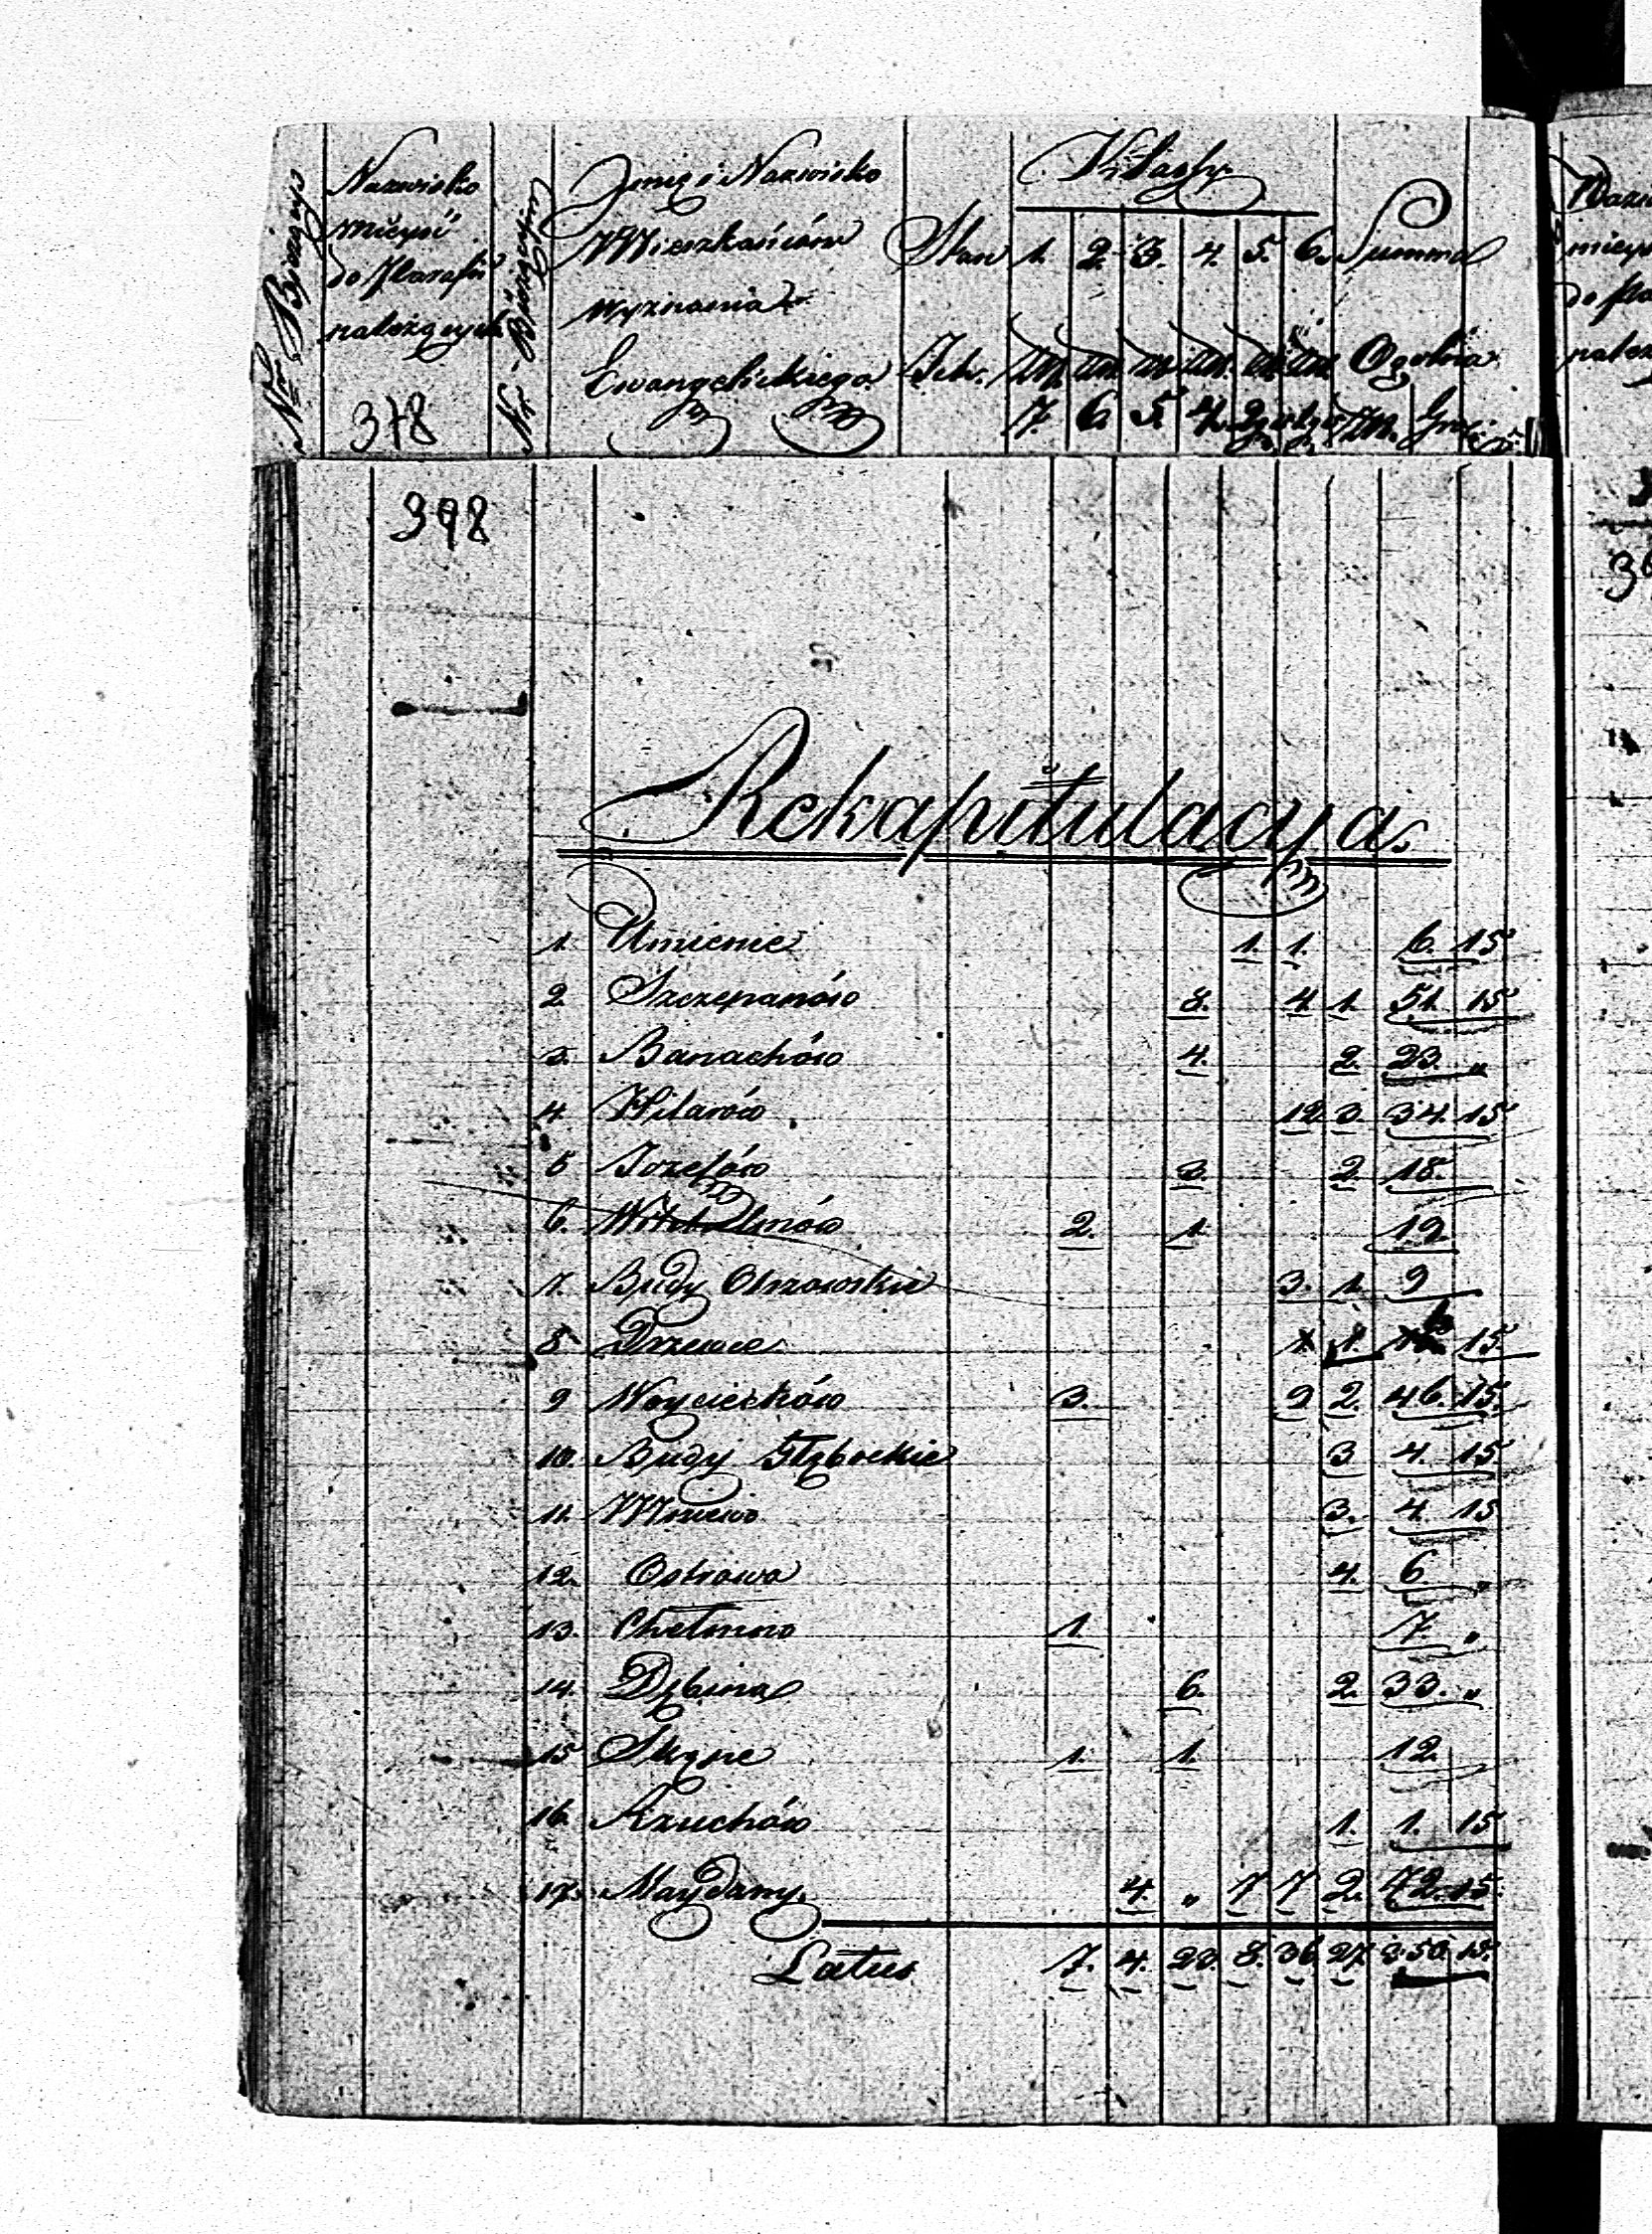 Nro Bieżący
Nazwisko
mieysc
do Parafii
należących
Nr. Bieżący
Jmię i Nazwisko
Mieszkańców
wyznania
Ewangelickiego
Stan
Klassy
1. 2. 3. 4. 5. 6.
Summa
Ogólna
7. 6. 5. 4.
378
398
Rekapitulacya.
1. Umienie 1. 1. 6. 15
2. Szczepanów 8. 4 1. 51. 15
3. Banachów 4. 2. 23. "
4. Hilarów 12 3. 34. 15
5 Jozefów 3. 2. 18.
6. Wilhelmów 2. 1. 19.
7. Budy 3. 1. 9
8 Drzewce 1. 15.
9 Woyciechów 3. 9 2. 46. 15.
10. Budy Głębockie 3 4. 15
11. Mniewo 3. 4. 15
12. Ostrowo 4. 6 "
13. Chełmno 1. 7 "
14. Dębina 6. 2. 33. "
15 1. 1. 12.
16. Rzuchów 1. 1. 15
17. Maydany. 4. " 7 7 2. 72. 15.
Latus 7. 4. 23. 8. 36 27. 350 15.